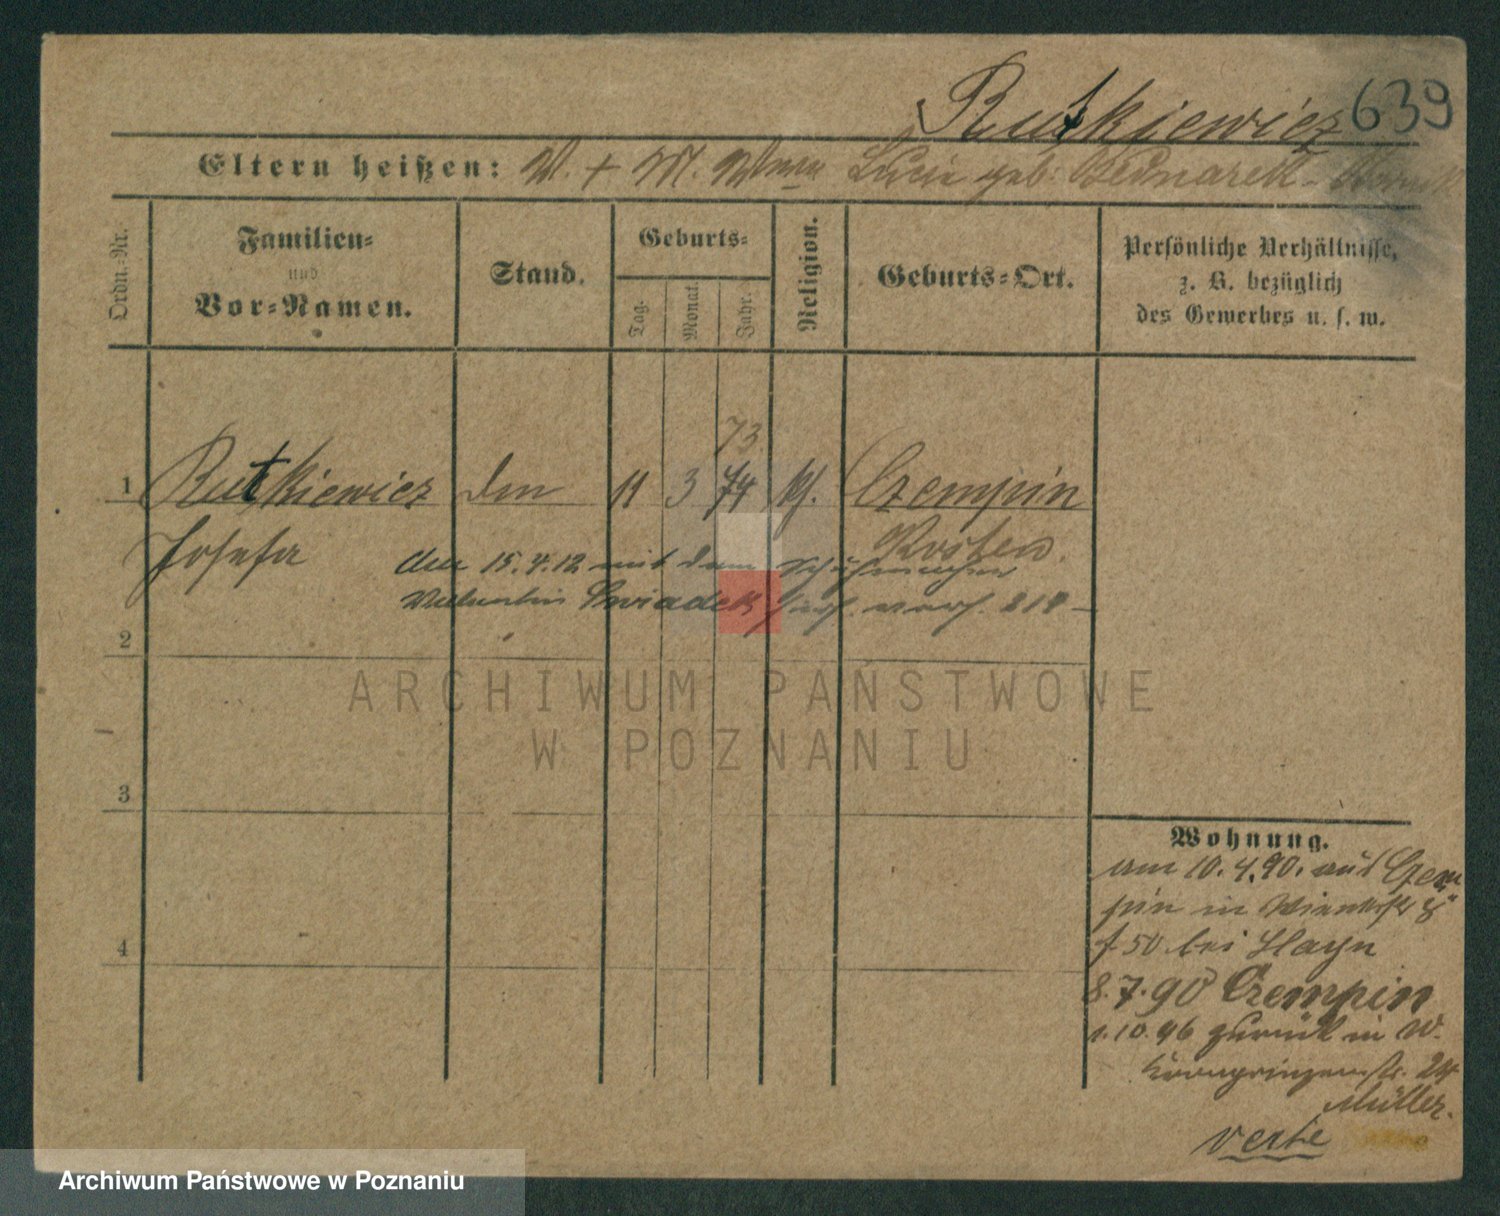 Rutkiewicz 639
Eltern heißen: V. + M. Lucie geb. Bednarek
Ordn.-Nr.
Familien-
und
Vor-Namen.
Stand.
Geburts-
Tag.
Monat.
Jahr.
Religion.
Geburts-Ort.
Persönliche Verhältnisse,
z. B. bezüglich
des Gewerbes u. s. w.
73
1 Rutkiewicz 11 3 74 Czempin
Josefa Kosten.
den 15.4.12 mit dem Schuhmacher
Valentin
2
ARCHIWUM PAŃSTWOWE
W POZNANIU
3
Wohnung.
am 10.4.90. aus Czem
pin in
50 bei Hayn
8.7.90 Czempin
1.10.96 zurück in W.
Kronprinzenstr. 24
Müller.
4
verte
Archiwum Państwowe w Poznaniu